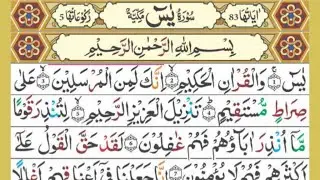 اٰیَاتُهَا 83 سُوْرَةُ یٰسٓ مَکِّیَّةٌ رُکُوْعَاتُهَا 5
بِسْمِ اللّٰهِ الرَّحْمٰنِ الرَّحِیْمِ
یٰسٓ ۚ وَالْقُرْاٰنِ الْحَکِیْمِ ۙ اِنَّکَ لَمِنَ الْمُرْسَلِیْنَ ۙ عَلٰی
صِرَاطٍ مُّسْتَقِیْمٍ ؕ تَنْزِیْلَ الْعَزِیْزِ الرَّحِیْمِ ۙ لِتُنْذِرَ قَوْمًا
مَّاۤ اُنْذِرَ اٰبَآؤُهُمْ فَهُمْ غٰفِلُوْنَ لَقَدْ حَقَّ الْقَوْلُ عَلٰۤی
اَکْثَرِهِمْ فَهُمْ لَا یُؤْمِنُوْنَ اِنَّا جَعَلْنَا فِیْۤ اَعْنَاقِهِمْ اَغْلٰلًا